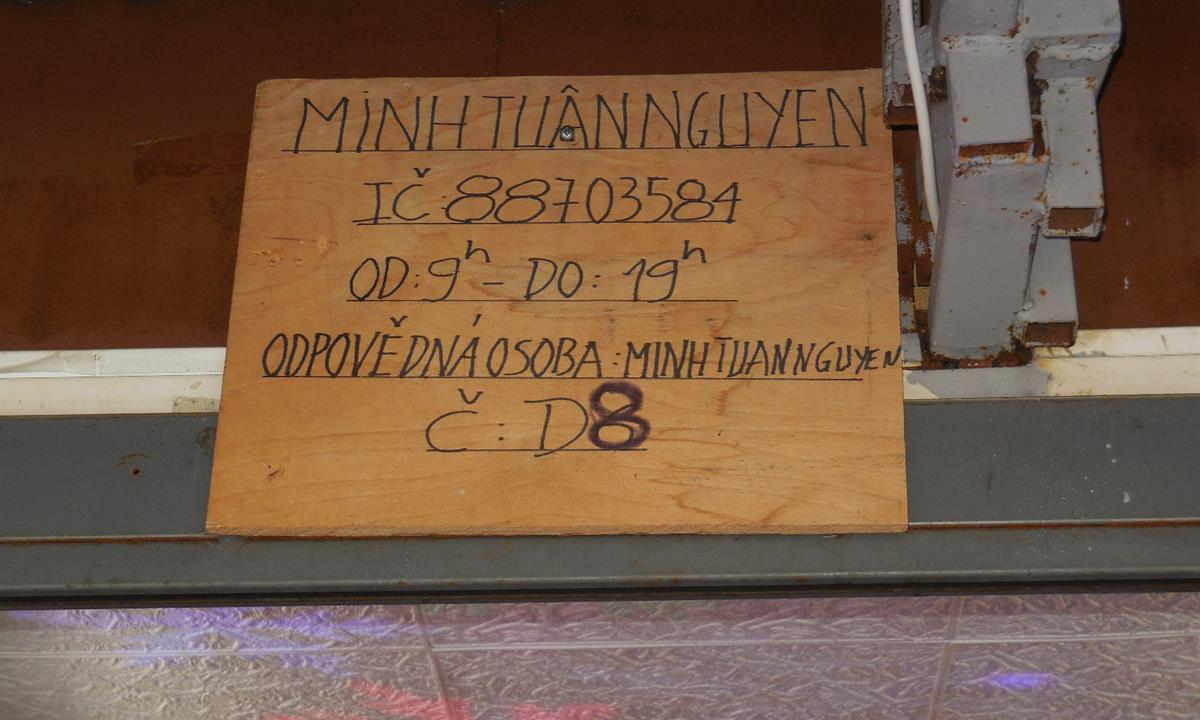 MINH TUÂN NGUYEN
IČ:88703584
OD: 9h - DO: 19h
ODPOVĚDNÁ OSOBA: MINH TUAN NGUYEN
Č: D8